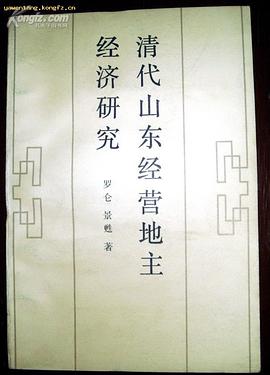 yawenting.kongfz.cn
Kongfz.com
清代山东经营地主
经济研究
罗仑 景甦 著